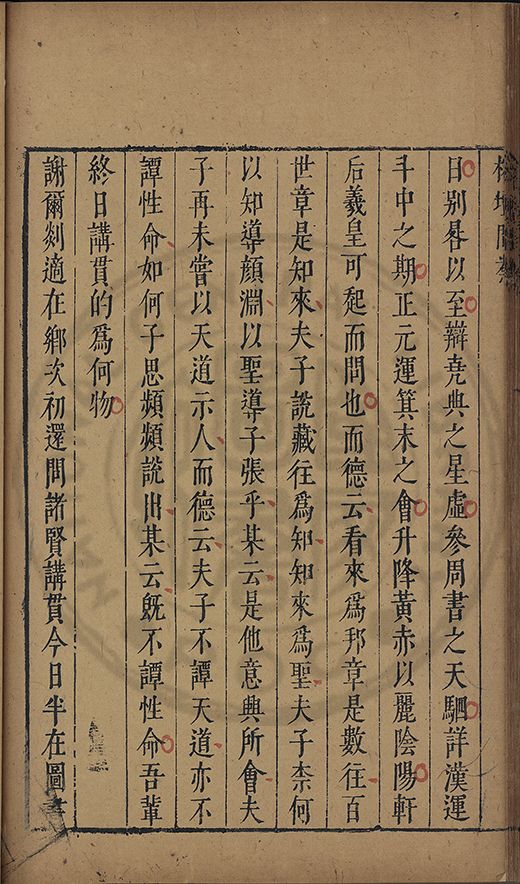 日別畧以至辯堯典之星虛參周書之天駟詳漢運
斗中之期正元運箕末之會升降黃赤以麗陰陽軒
后羲皇可起而問也而德云看來爲邦章是數往百
世章是知來夫子說藏往爲知知來爲聖夫子柰何
以知導顏淵以聖導子張乎某云是他意與所會夫
子再未嘗以天道示人而德云夫子不譚天道亦不
譚性命如何子思頻頻說出某云旣不譚性命吾輩
終日講貫的爲何物
謝爾剡適在鄉次初還問諸賢講貫今日半在圖書